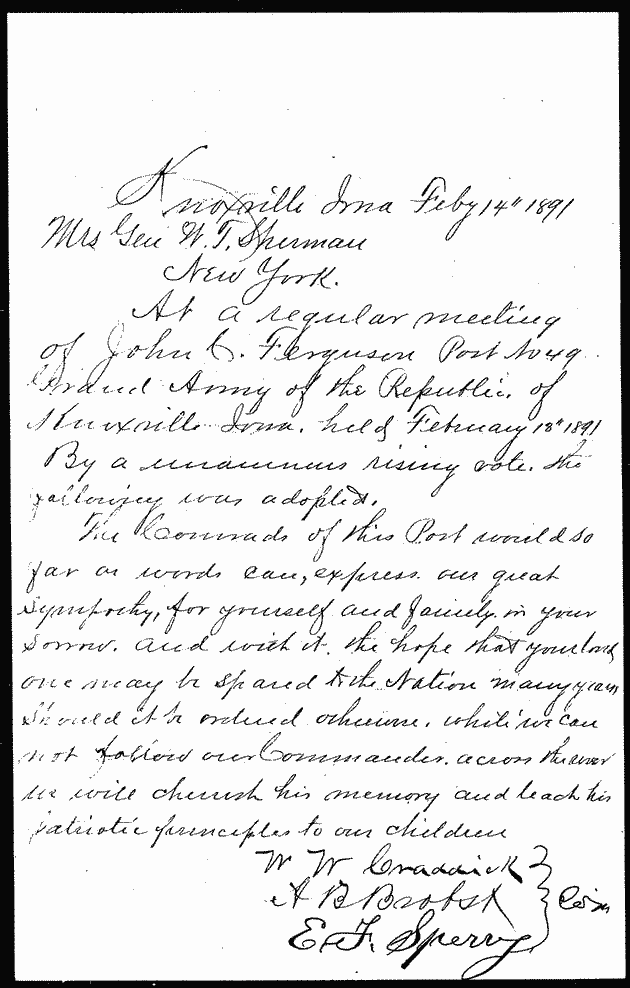 Knoxville Iowa Feby 14" 1891
Mrs Gen W. T. Sherman
New York.
At a regular meeting
of John C. Ferguson Post No 49
Grand Army of the Republic. of
Knoxville Iowa. held February 13" 1891
By a unanimus rising vote. the
following was adopted.
The Comrads of this Post would so
far as words can, express our great
sympathy, for yourself and family in your
sorrow. and with it. the hope that your loved
one may be spared to the Nation many years
should it be ordered otherwise. while we can
not follow our Commander. across the river
we will cherish his memory and teach his
patriotic principles to our children
W W Craddick
A B Brobst } Com
E. F. Sperry